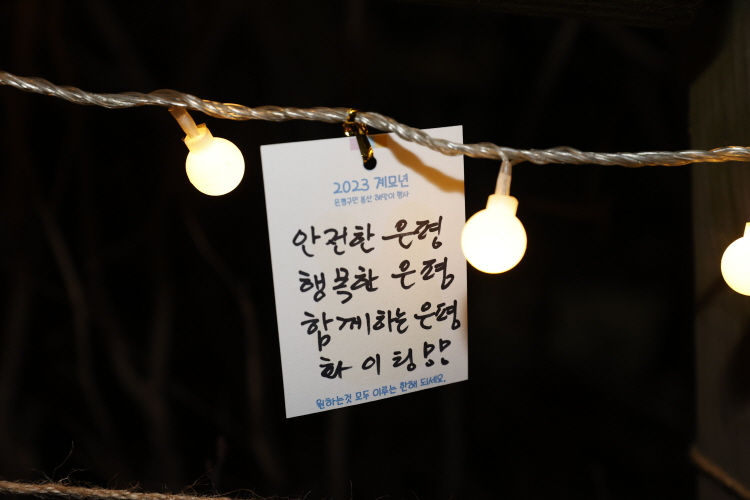 2023 계묘년
은평구민 봉산 해맞이 행사
안전한 은평
행복한 은평
함께하는 은평
화이팅!!!
원하는것 모두 이루는 한해 되세요.